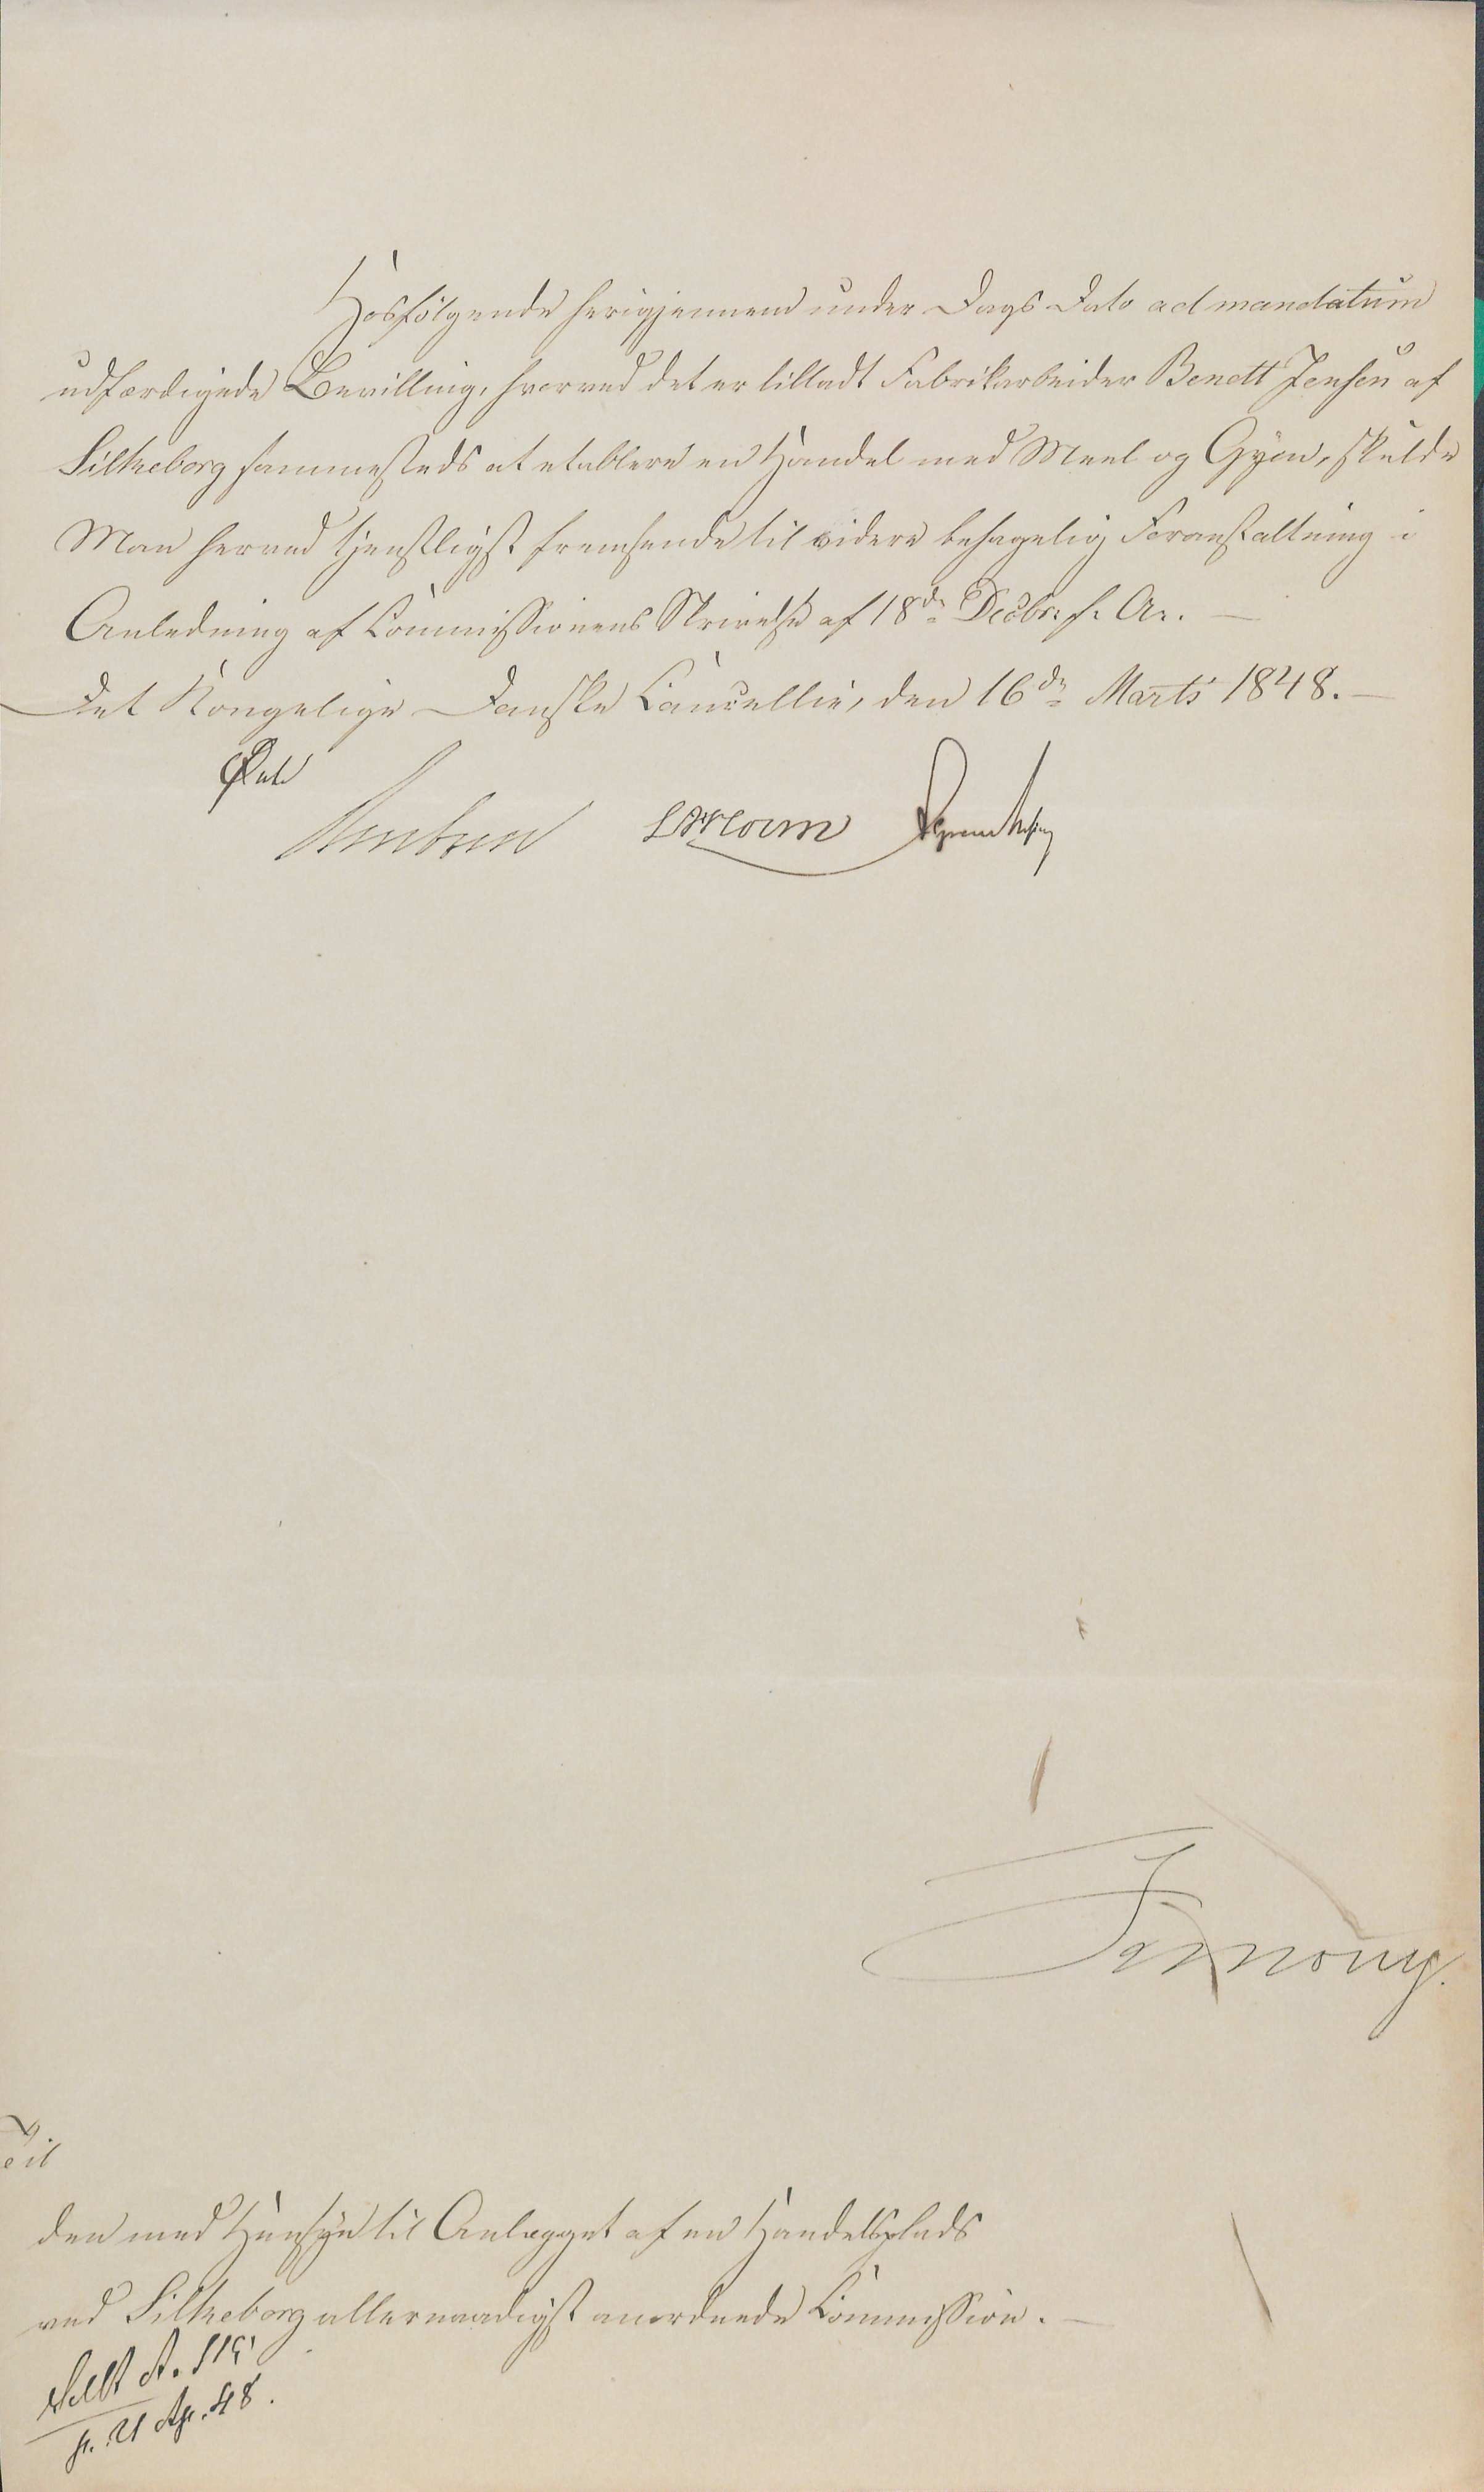 Hosfølgende herigjennem under Dags Dato ad mandatum
udfærdigede Bevilling, hvorved det er tilladt Fabrikarbeider Benett Jensen af
Silkeborg sammesteds at etablere en Handel med Meel og Gryn, skulde
Man herved tjenstligst fremsende til videre behagelig Foranstaltning i
Anledning af Commissionens Skrivelse af 18de Decbr: f. A.
Det Kongelige Danske Cancellie, den 16de Marts 1848.
Til
den med Hensyn til Anlægget af en Handelsplads
ved Silkeborg allernaadigst anordnede Commission.
21 Ap. 48.